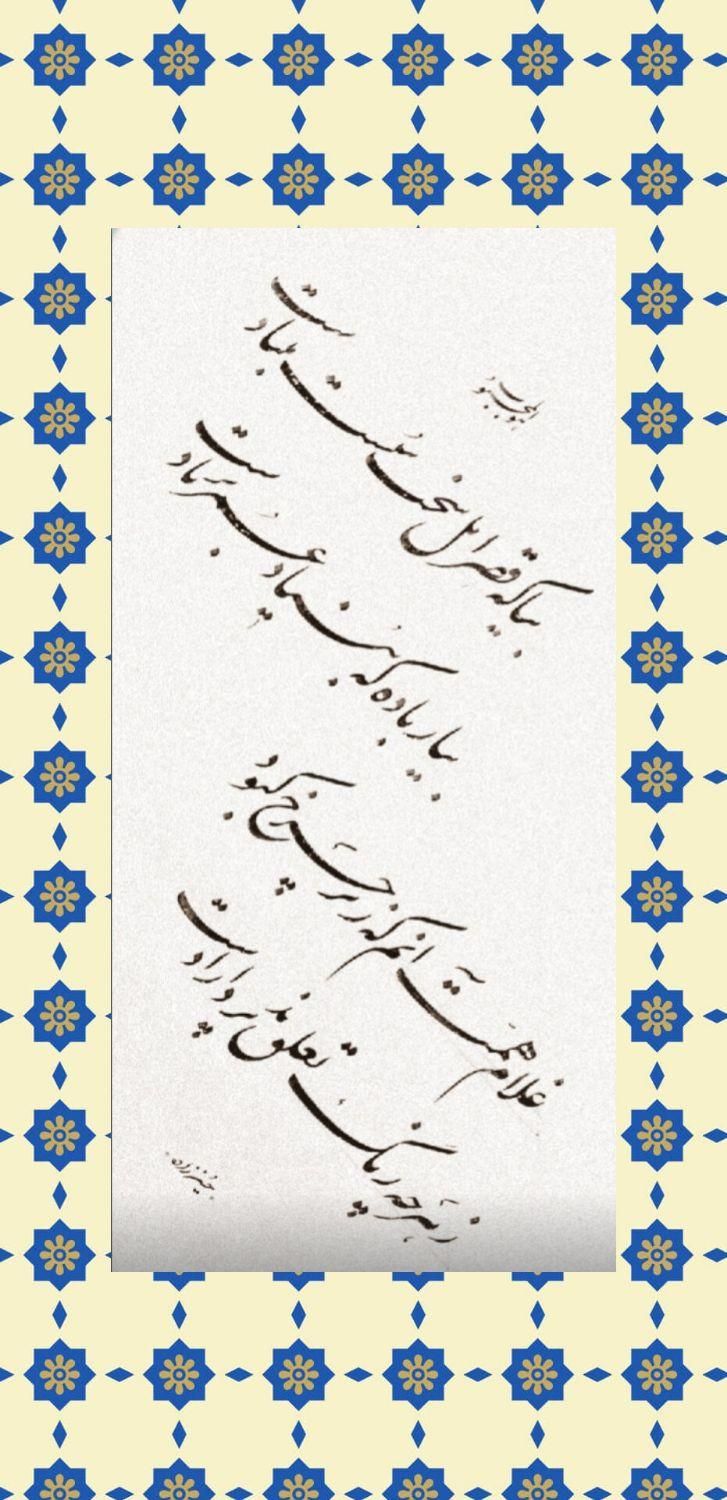 هوالمحبوب
بیا که قصر امل سخت سست بنیادست
بیار باده که بنیاد عمر بر بادست
غلام همت آنم که زیر چرخ کبود
ز هر چه رنگ تعلق پذیرد آزادست